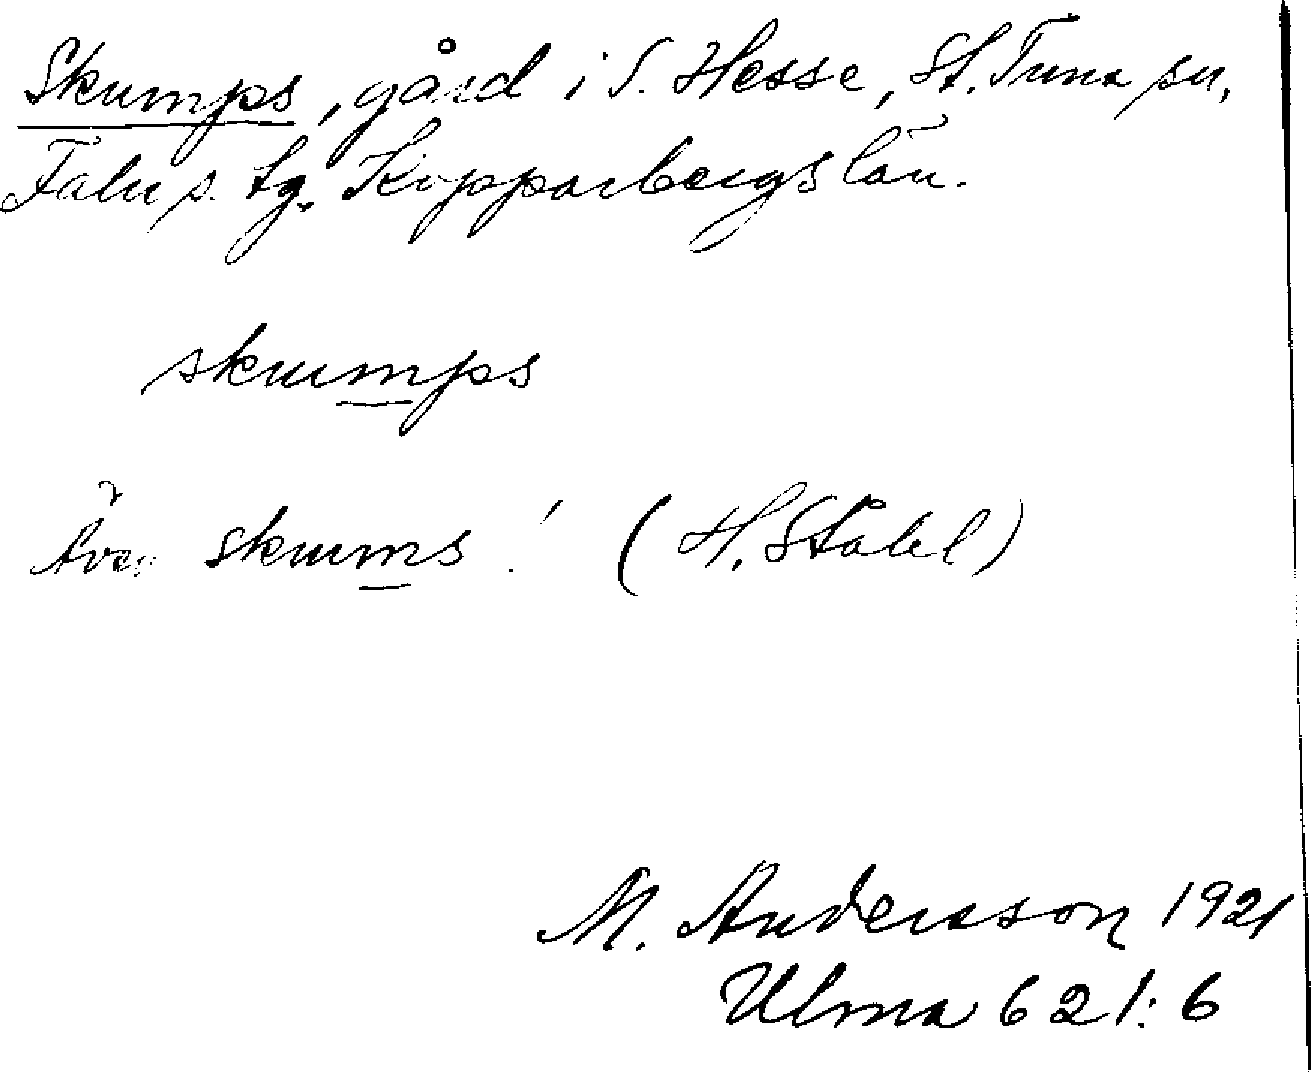 Skumps, gård i S. Hesse, St. Tuna sn,
Falu s. tg. Kopparbergs län.
skumps
Även skums! (H. Ståhl)
M. Andersson 1921
Ulma 621:6